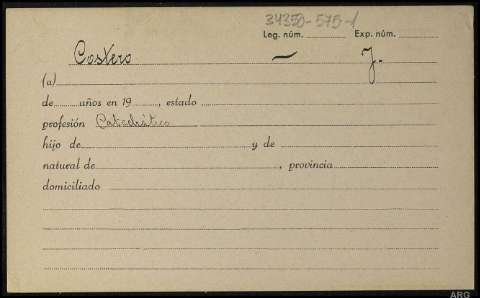 34350-575-1
Leg. núm. Exp. núm.
Costero — J.
(a)
de años en 19 , estado
profesión Catedrático
hijo de y de
natural de , provincia
domiciliado
ARG